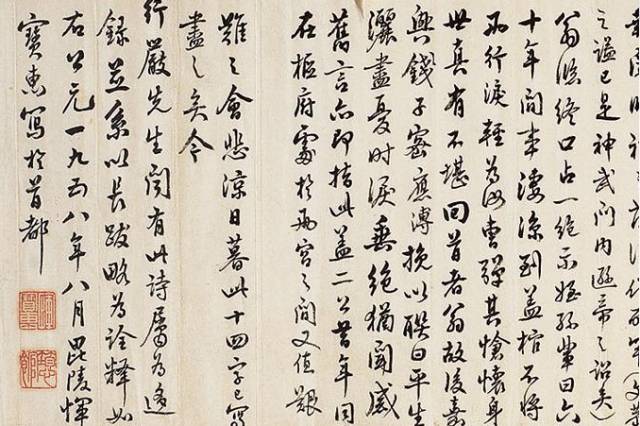 之謚已是神武門内遜帝之詔矣)
翁臨終口占一絶示姪孫輩曰六
十年間事淒涼到蓋棺不將
兩行淚輕為汝曹彈其愴懷身
世真有不堪回首者翁故後嘉
興錢子密應溥挽以聯曰平生
灑盡憂時淚垂絶猶聞感
舊言亦即指此蓋二公昔年同
在樞府處於兩宮之間又值艱
難之會悲涼日暮此十四字已寫
盡之矣今
行嚴先生閲有此詩屬為迻
録並系以長跋略為詮釋如
右公元一九五八年八月毘陵惲
寶惠寫於首都